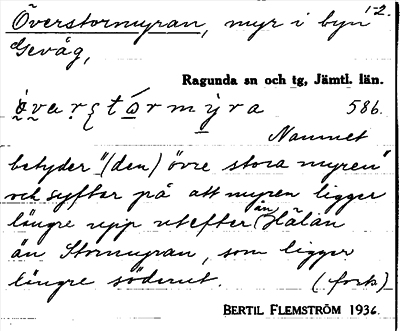 1-2.
Överstormyran, myr i byn
Gevåg,
Ragunda sn och tg, Jämtl. län.
586.
Namnet
betyder "(den) övre stora myren"
och syftar på att myren ligger
längre upp utefter ån Hälån
än Stormyran, som ligger
längre söderut. (forts)
BERTIL FLEMSTRÖM 1936.